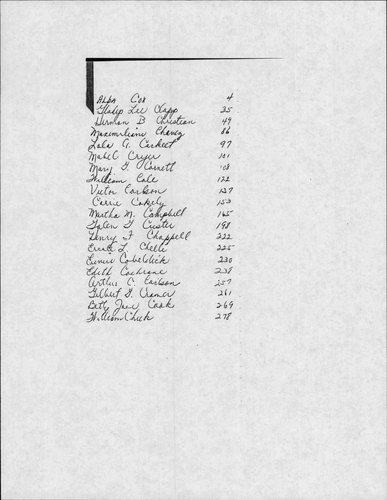 Alda Cox 4
Gladys Lee Clapp 35
Herman B Christian 49
Maximiliano Chavez 86
Lola A. 97
Mabel Cryer 101
Mary G. Cornett 108
William Cole 122
Victor Carlson 137
Carrie Cakely 153
Martha M. Campbell 165
Galen G Custer 198
Henry F Chappell 222
L. 225
Eunice 230
Edith Cochrane 238
Arthur C. Carlson 257
Gilbert G. Cramer 261
Betty Jane Cook 269
William Cheek 278